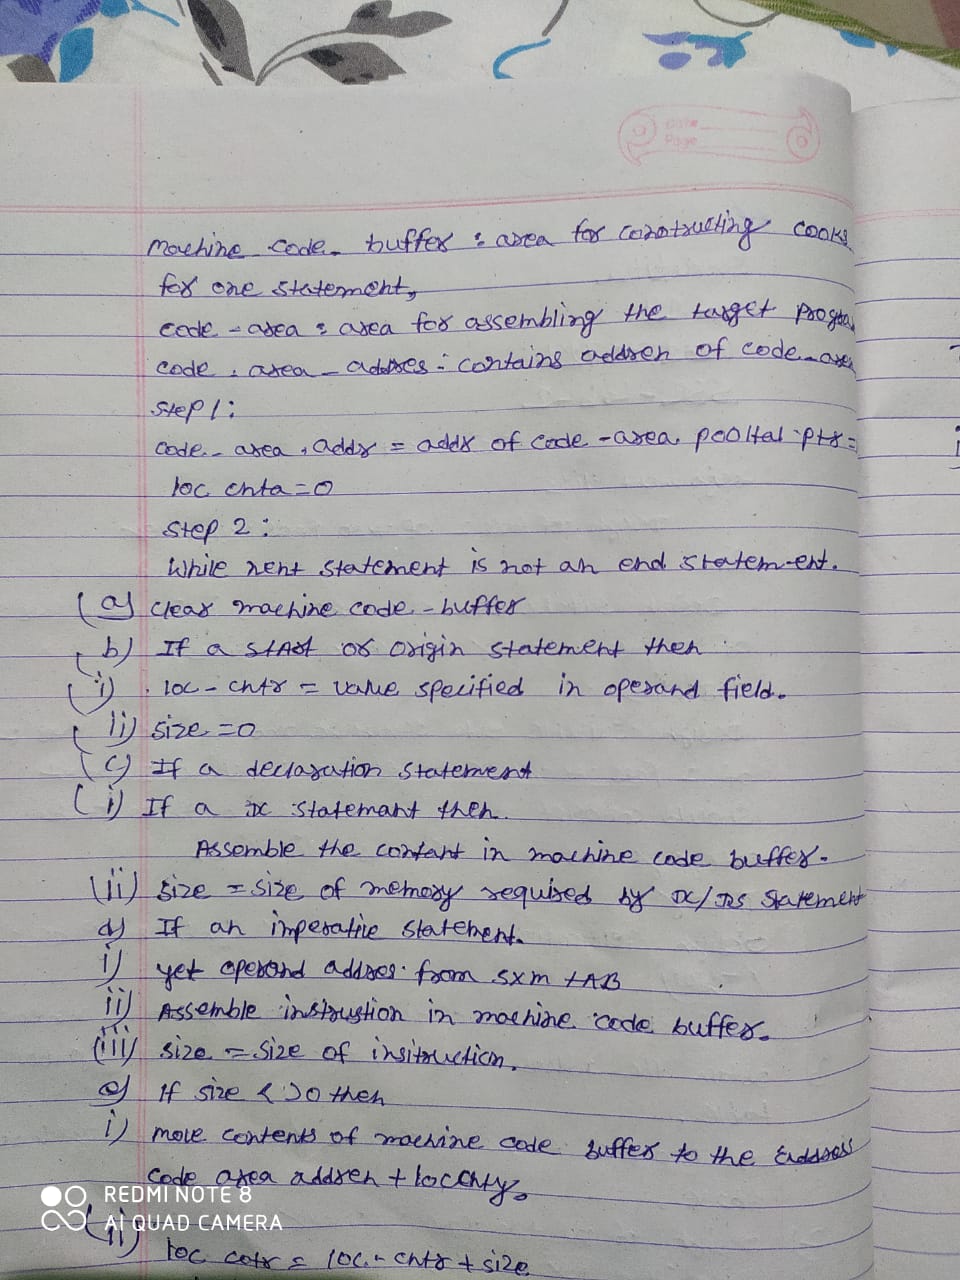 Date
Page
Machine code - buffer : area for constructing
for one statement,
code - area : area for assembling the target
code . area - address : contains address of code - area
Step 1 :
code - area . addr = addr of code - area pooltal - ptr =
loc cnta = 0
Step 2 :
While next statement is not an end statem-ent.
(a) clear machine code - buffer
b) If a start or origin statement then
i) loc - cntr = value specified in operand field.
ii) size = 0
(c) If a declaration statement
(i) If a DC statemant then
Assemble the contant in machine code buffer.
(ii) size = size of memory required by DC/DS statement
d) If an imperative statement.
i) yet operand addres from sxm tAB
ii) Assemble instrustion in machine code buffer.
(iii) size = size of insitruction.
e) If size < > 0 then
i) move contents of machine code buffer to the address
code area address + loccnty.
(ii) loc cotr = loc - cntr + size
REDMI NOTE 8
AI QUAD CAMERA